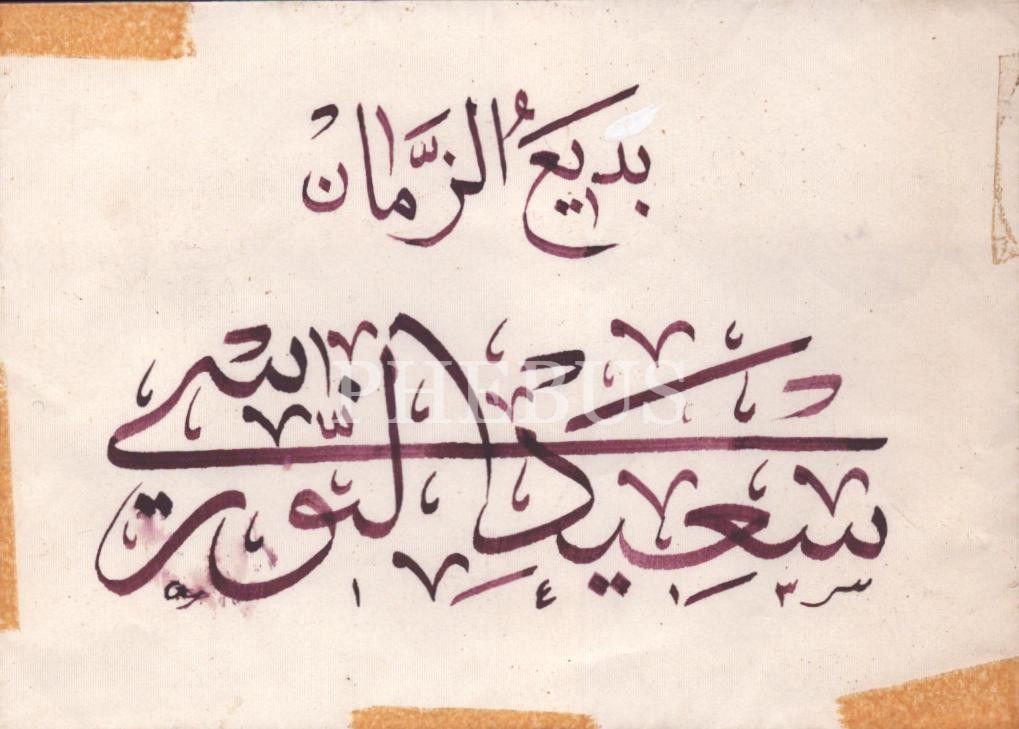 بَديعُ الزَّمان
سَعِيدُ النُّورسِّي
PHEBUS